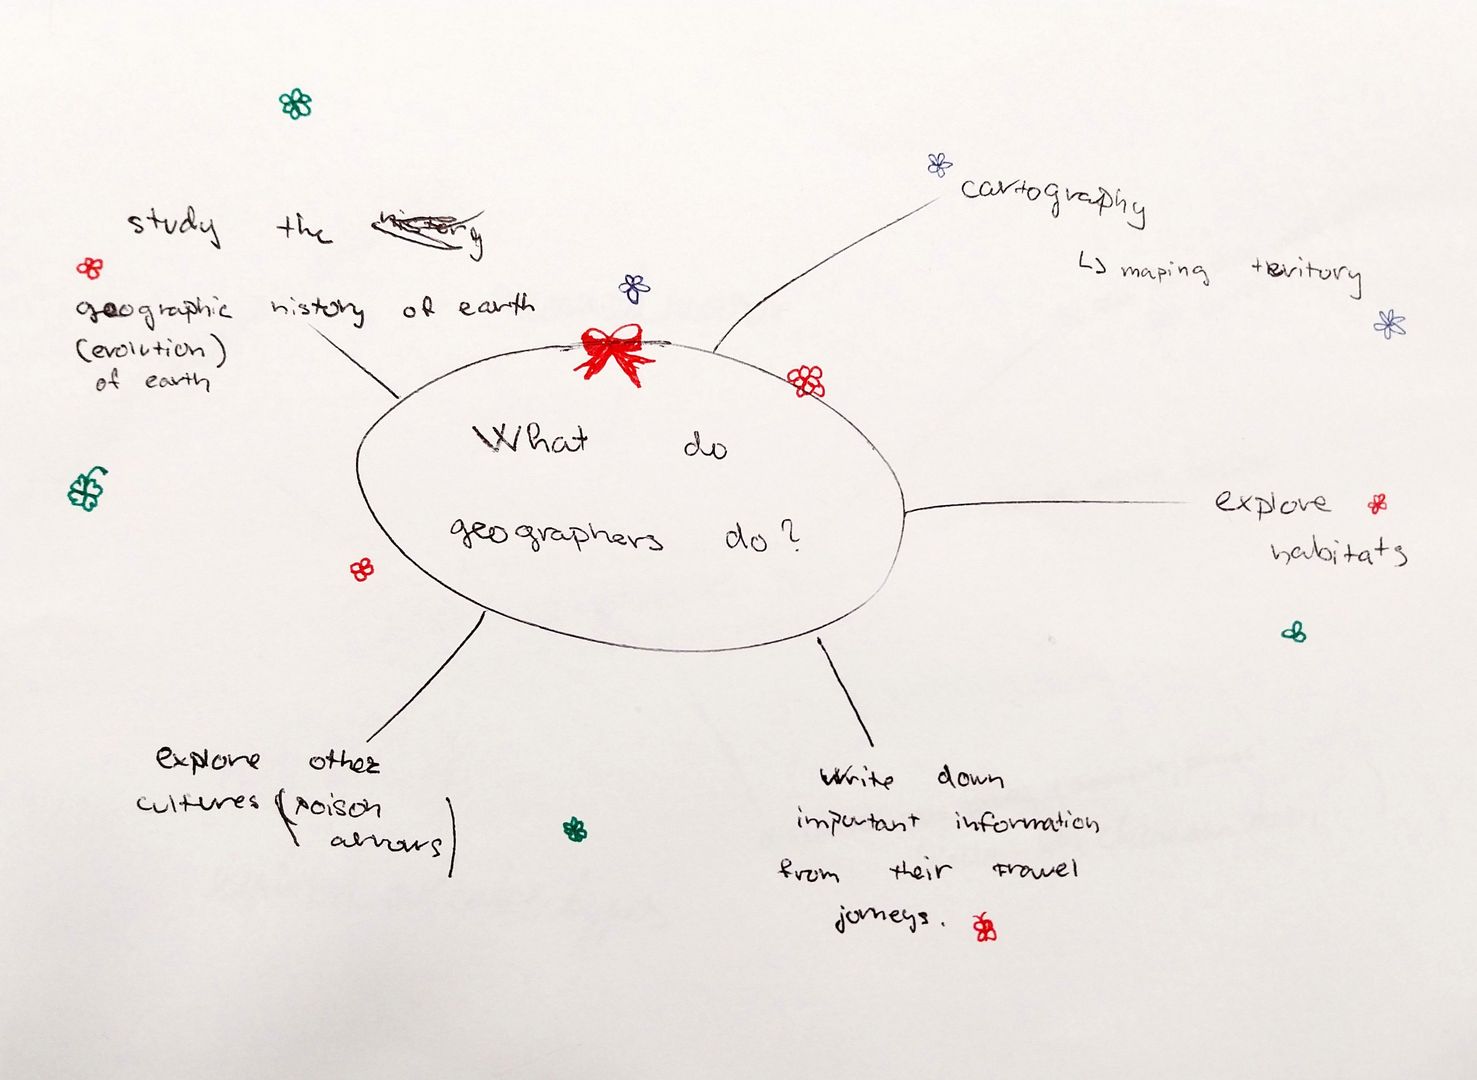 study the history
geographic history of earth
(evolution)
of earth
cartography
↳ maping teritory
What do
geographers do?
explore
habitats
explore other
cultures (poison
arrows)
write down
important information
from their travel
jorneys.